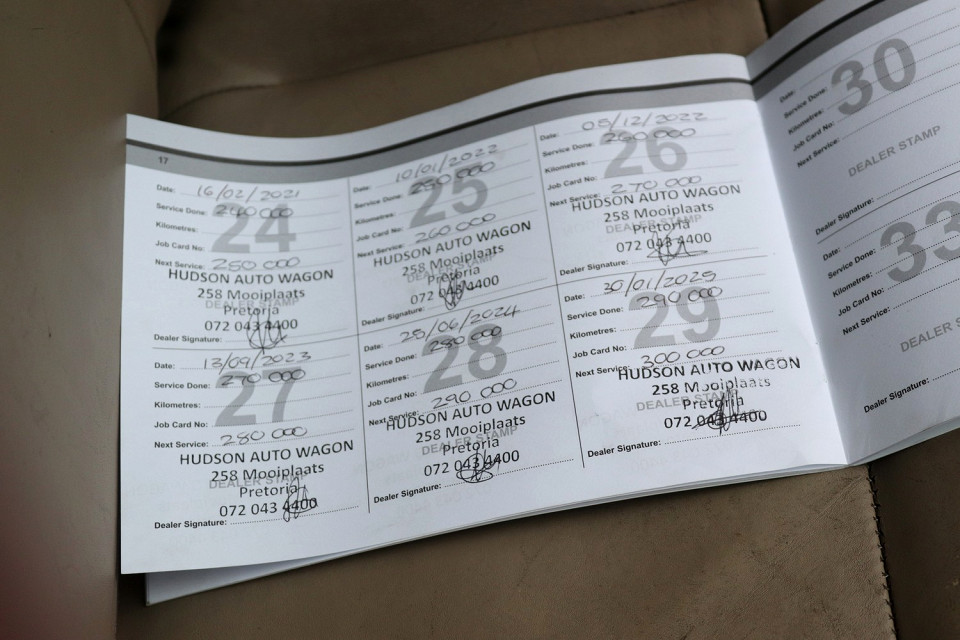 17
Date: 16/02/2021
Service Done: 240 000
24
Kilometres:
Job Card No:
Next Service: 250 000
HUDSON AUTO WAGON
258 Mooiplaats
DEALER STAMP
Pretoria
072 043 4400
Dealer Signature:
Date: 10/01/2022
Service Done: 250 000
25
Kilometres:
Job Card No:
Next Service: 260 000
HUDSON AUTO WAGON
258 Mooiplaats
DEALER STAMP
Pretoria
072 043 4400
Dealer Signature:
Date: 05/12/2022
Service Done: 260 000
26
Kilometres:
Job Card No:
Next Service: 270 000
HUDSON AUTO WAGON
258 Mooiplaats
DEALER STAMP
Pretoria
072 043 4400
Dealer Signature:
Date: 13/09/2023
Service Done: 270 000
27
Kilometres:
Job Card No:
Next Service: 280 000
HUDSON AUTO WAGON
258 Mooiplaats
DEALER STAMP
Pretoria
072 043 4400
Dealer Signature:
Date: 25/06/2024
Service Done: 280 000
28
Kilometres:
Job Card No:
Next Service: 290 000
HUDSON AUTO WAGON
258 Mooiplaats
DEALER STAMP
Pretoria
072 043 4400
Dealer Signature:
Date: 30/01/2025
Service Done: 290 000
29
Kilometres:
Job Card No:
Next Service: 300 000
HUDSON AUTO WAGON
258 Mooiplaats
DEALER STAMP
Pretoria
072 043 4400
Dealer Signature:
Date:
Service Done:
30
Kilometres:
Job Card No:
Next Service:
DEALER STAMP
Dealer Signature:
Date:
Service Done:
33
Kilometres:
Job Card No:
Next Service:
DEALER
Dealer Signature: